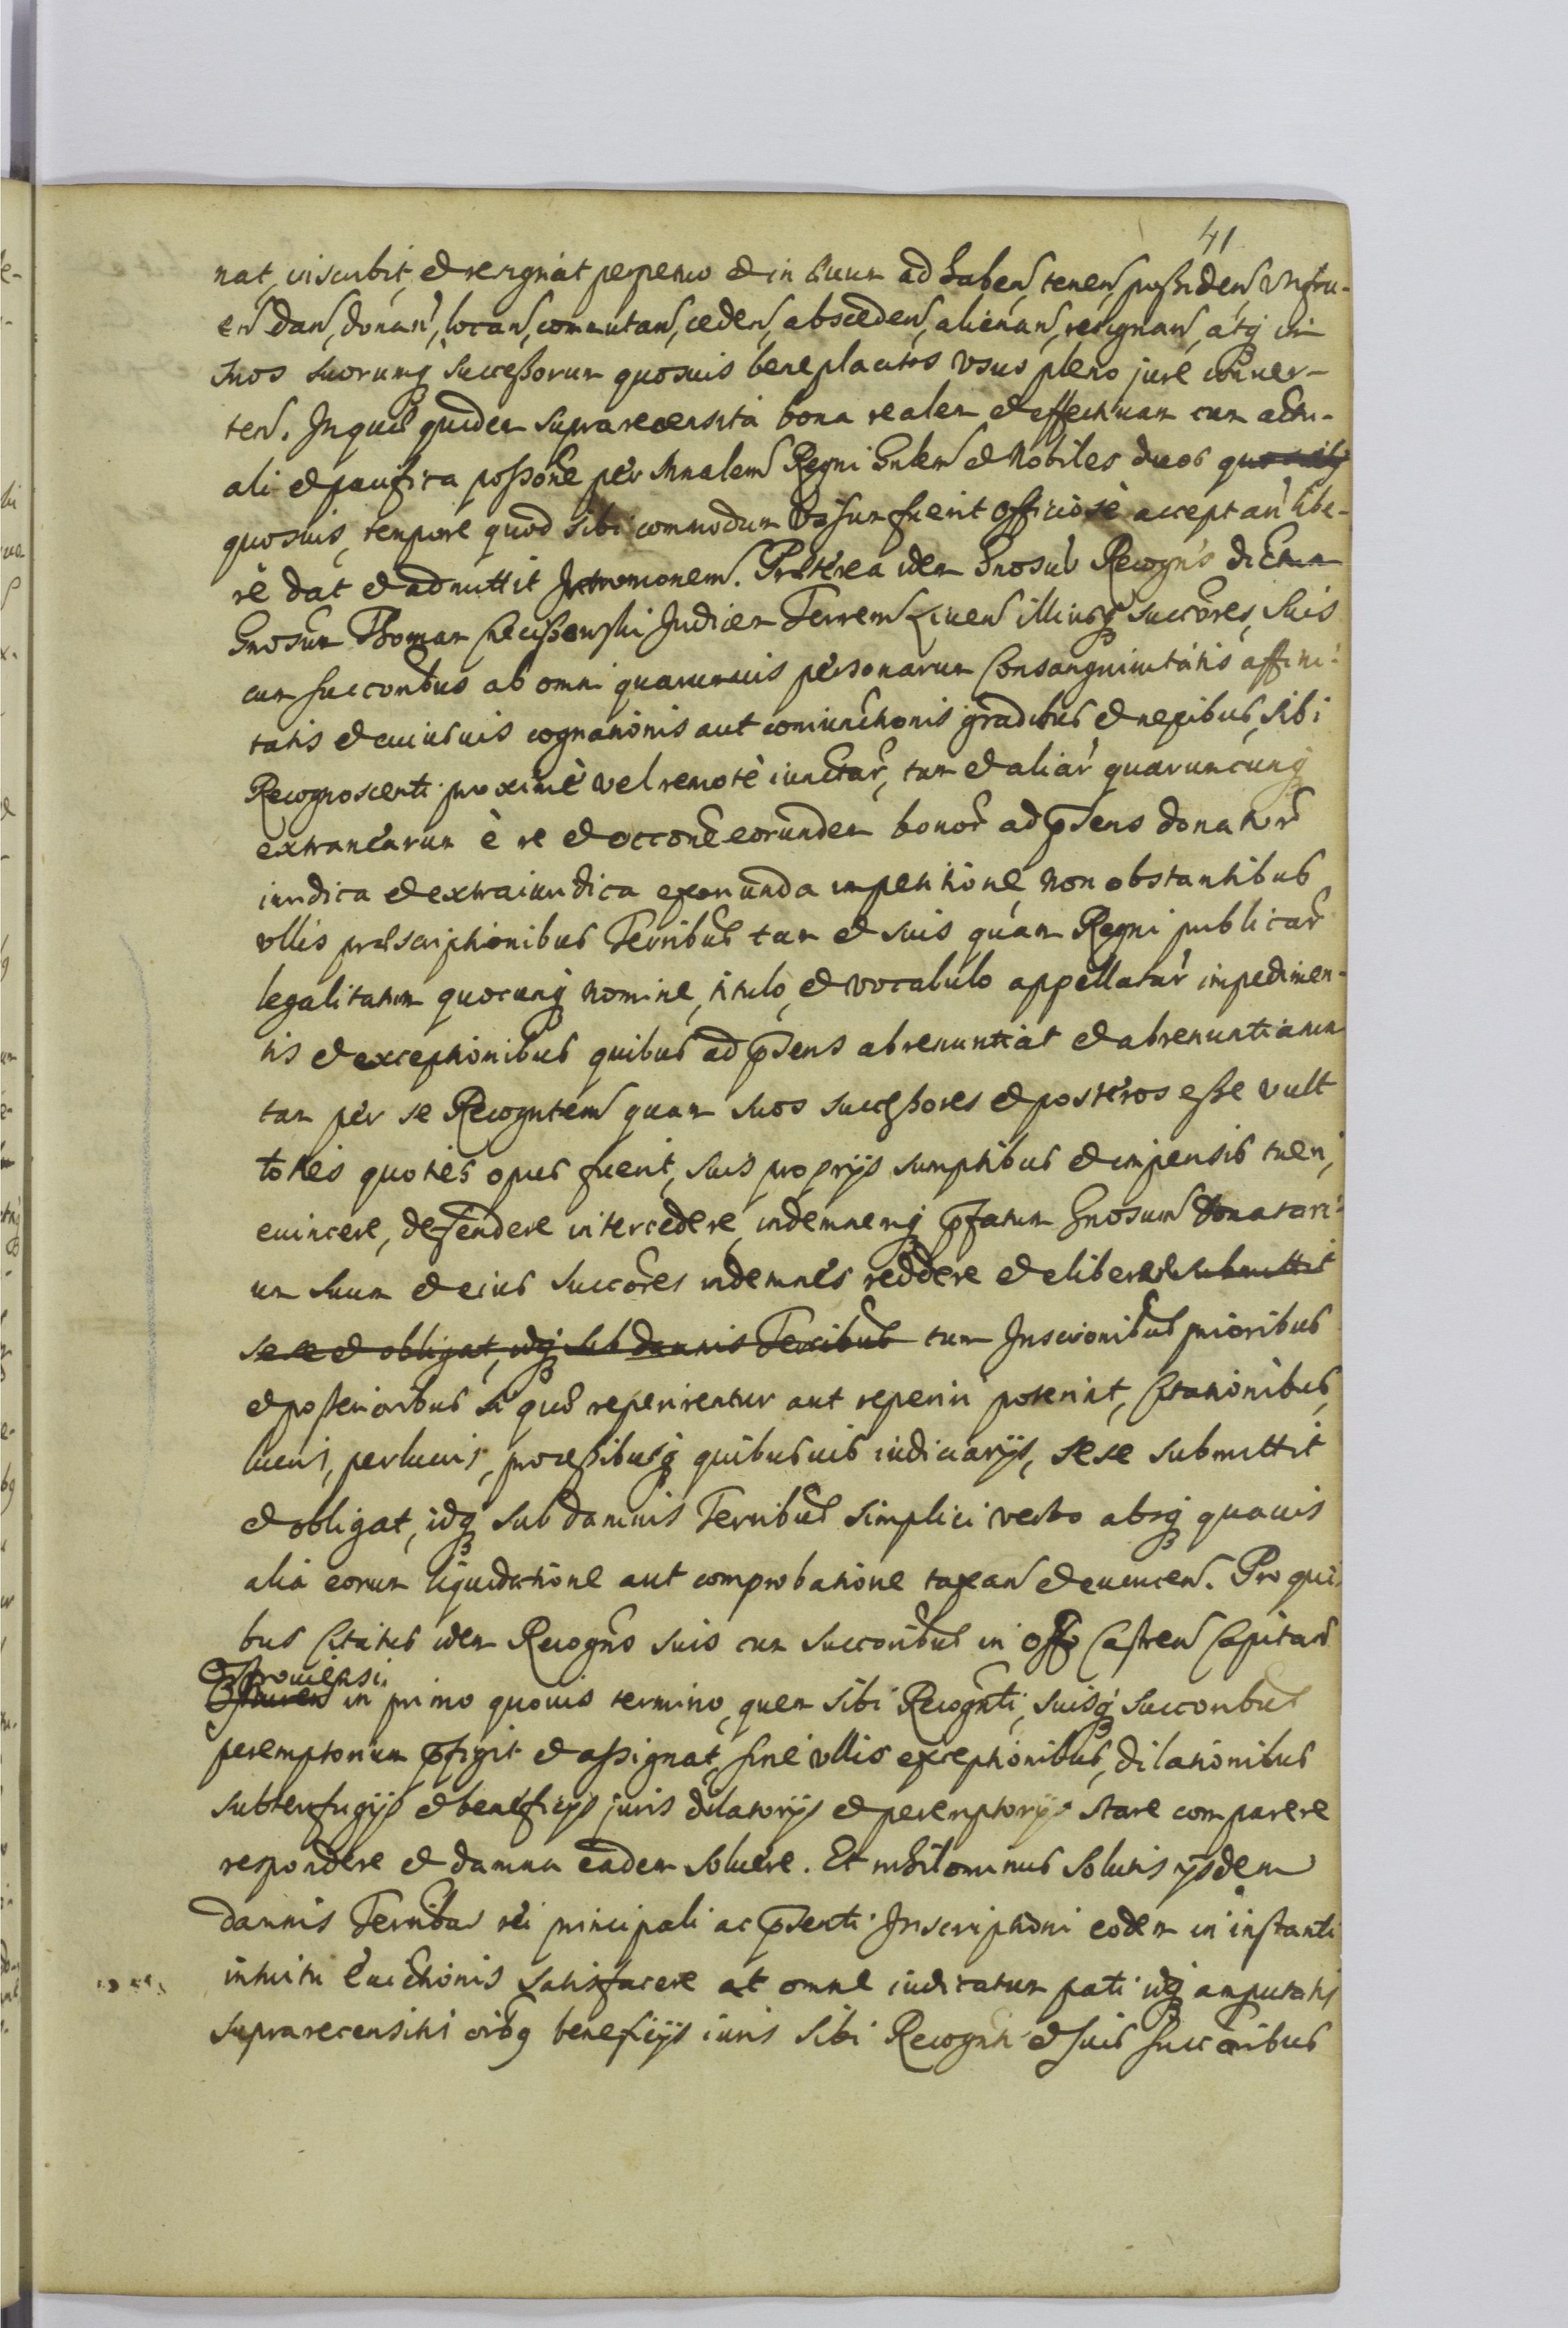 41
nat, inscribit, et resignat perpetuo et in ęuum ad haben, tenen, possiden, Vsfru-
en dan, donan, locan, comutan, ceden, absceden, alienan, resignan, atq in
suos suorumq Successorum quosuis beneplacitos vsus pleno jure conuer-
ten. Inque quidem suprarecensita bona realem et effectuam cum actu-
ali et pacifica possone per Mnalem Regni Gnlem et Nobiles duos
quosuis, tempore quod sibi commodum visum fuerit officiose acceptan libe-
re dat et admittit Intromonem. Præterea idem Gnosus Recogns dictum
Gnosum Thomam Judicem Terrem illiusq succores, Suis
cum succoribus ab omni quarumuis personarum Consanguinitatis affini-
tatis et cuiusuis cognationis aut coniunctionis gradibus et nexibus, sibi
Recognoscenti proxime vel remote iunctar, tum et aliar quarumcunq
extranearum è re et occone eorundem bonor ad psens donator
iuridica et extraiuridica exoriunda impetitione, non obstantibus
vllis præscriptionibus Terribus tam et suis quam Regni publicar
legalitatum quocunq nomine, titulo, et vocabulo appellatar impedimen-
tis et exceptionibus quibus ad psens abrenuntiat et abrenuntiatum
tam per se Recogntem quam suos successores et posteros esse vult
toties quoties opus fuerit, suis proprijs sumptibus et impensis tueri,
euincere, defendere intercedere, indemnemq pfatum Gnosum Donatari-
um suum et eius Succores indemnes reddere et eliberare submittit
sese et obligat, idq sub damnis Terribus tum Inscronibus prioribus
et posterioribus si quæ reperirentur aut reperiri poterint, Citationibus,
lucris, perlucris, processibusq quibusuis iudiciarijs, sese submittit
et obligat, idq sub damnis Terribus simplici verbo absq quauis
alia eorum liquidatione aut comprobatione taxan et euincen. Pro qui-
bus Citatus idem Recogns suis cum succoribus in offo Castren Capitan
Ostrouiensi
in primo quouis termino, quem sibi Recognti, suisq Succoribus
peremptorium pfigit et assignat, sine vllis exceptionibus, dilationibus
subterfugijs et beneficijs juris dilatorijs et peremptorijs stare comparere
respondere et damna eadem soluere. Et nihilominus Solutis ijsdem
damnis Terribus rei principali ac psenti Inscriptioni eodem in instanti
intuitu Euictionis satisfacere at omne iudicatum pati idq amputatis
suprarecensitis oibq beneficijs iuris sibi Recognti et suis succoribus